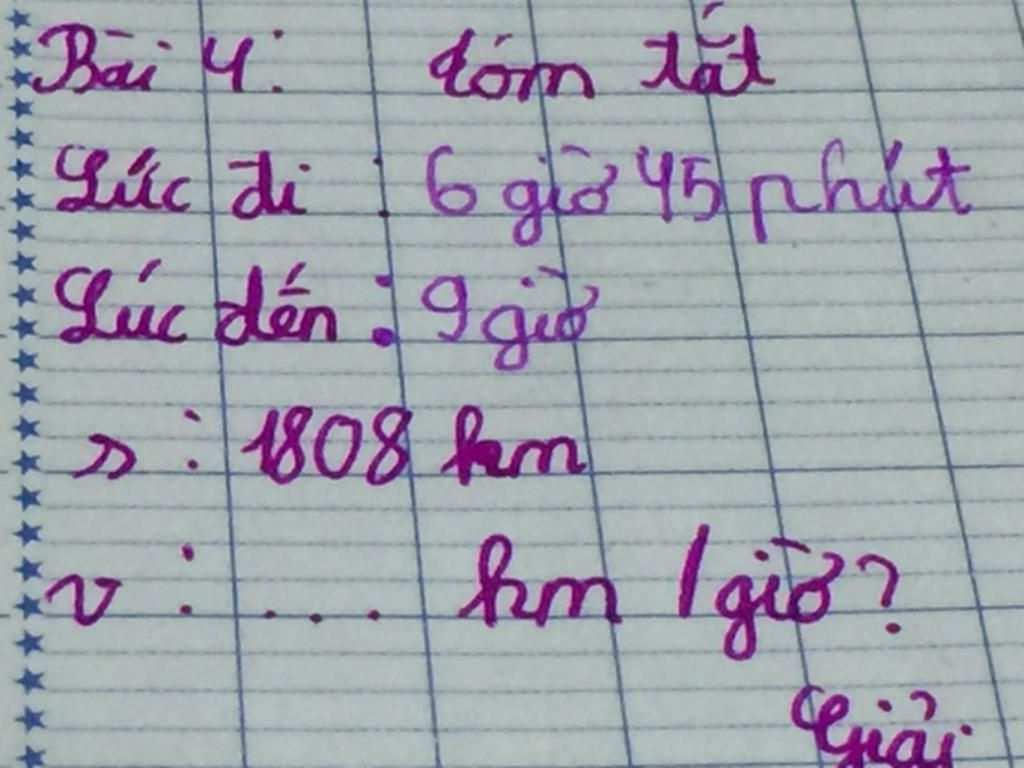 Bài 4: tóm tắt
Lúc đi : 6 giờ 45 phút
Lúc đến : 9 giờ
s : 1808 km
v : .... km / giờ?
Giải